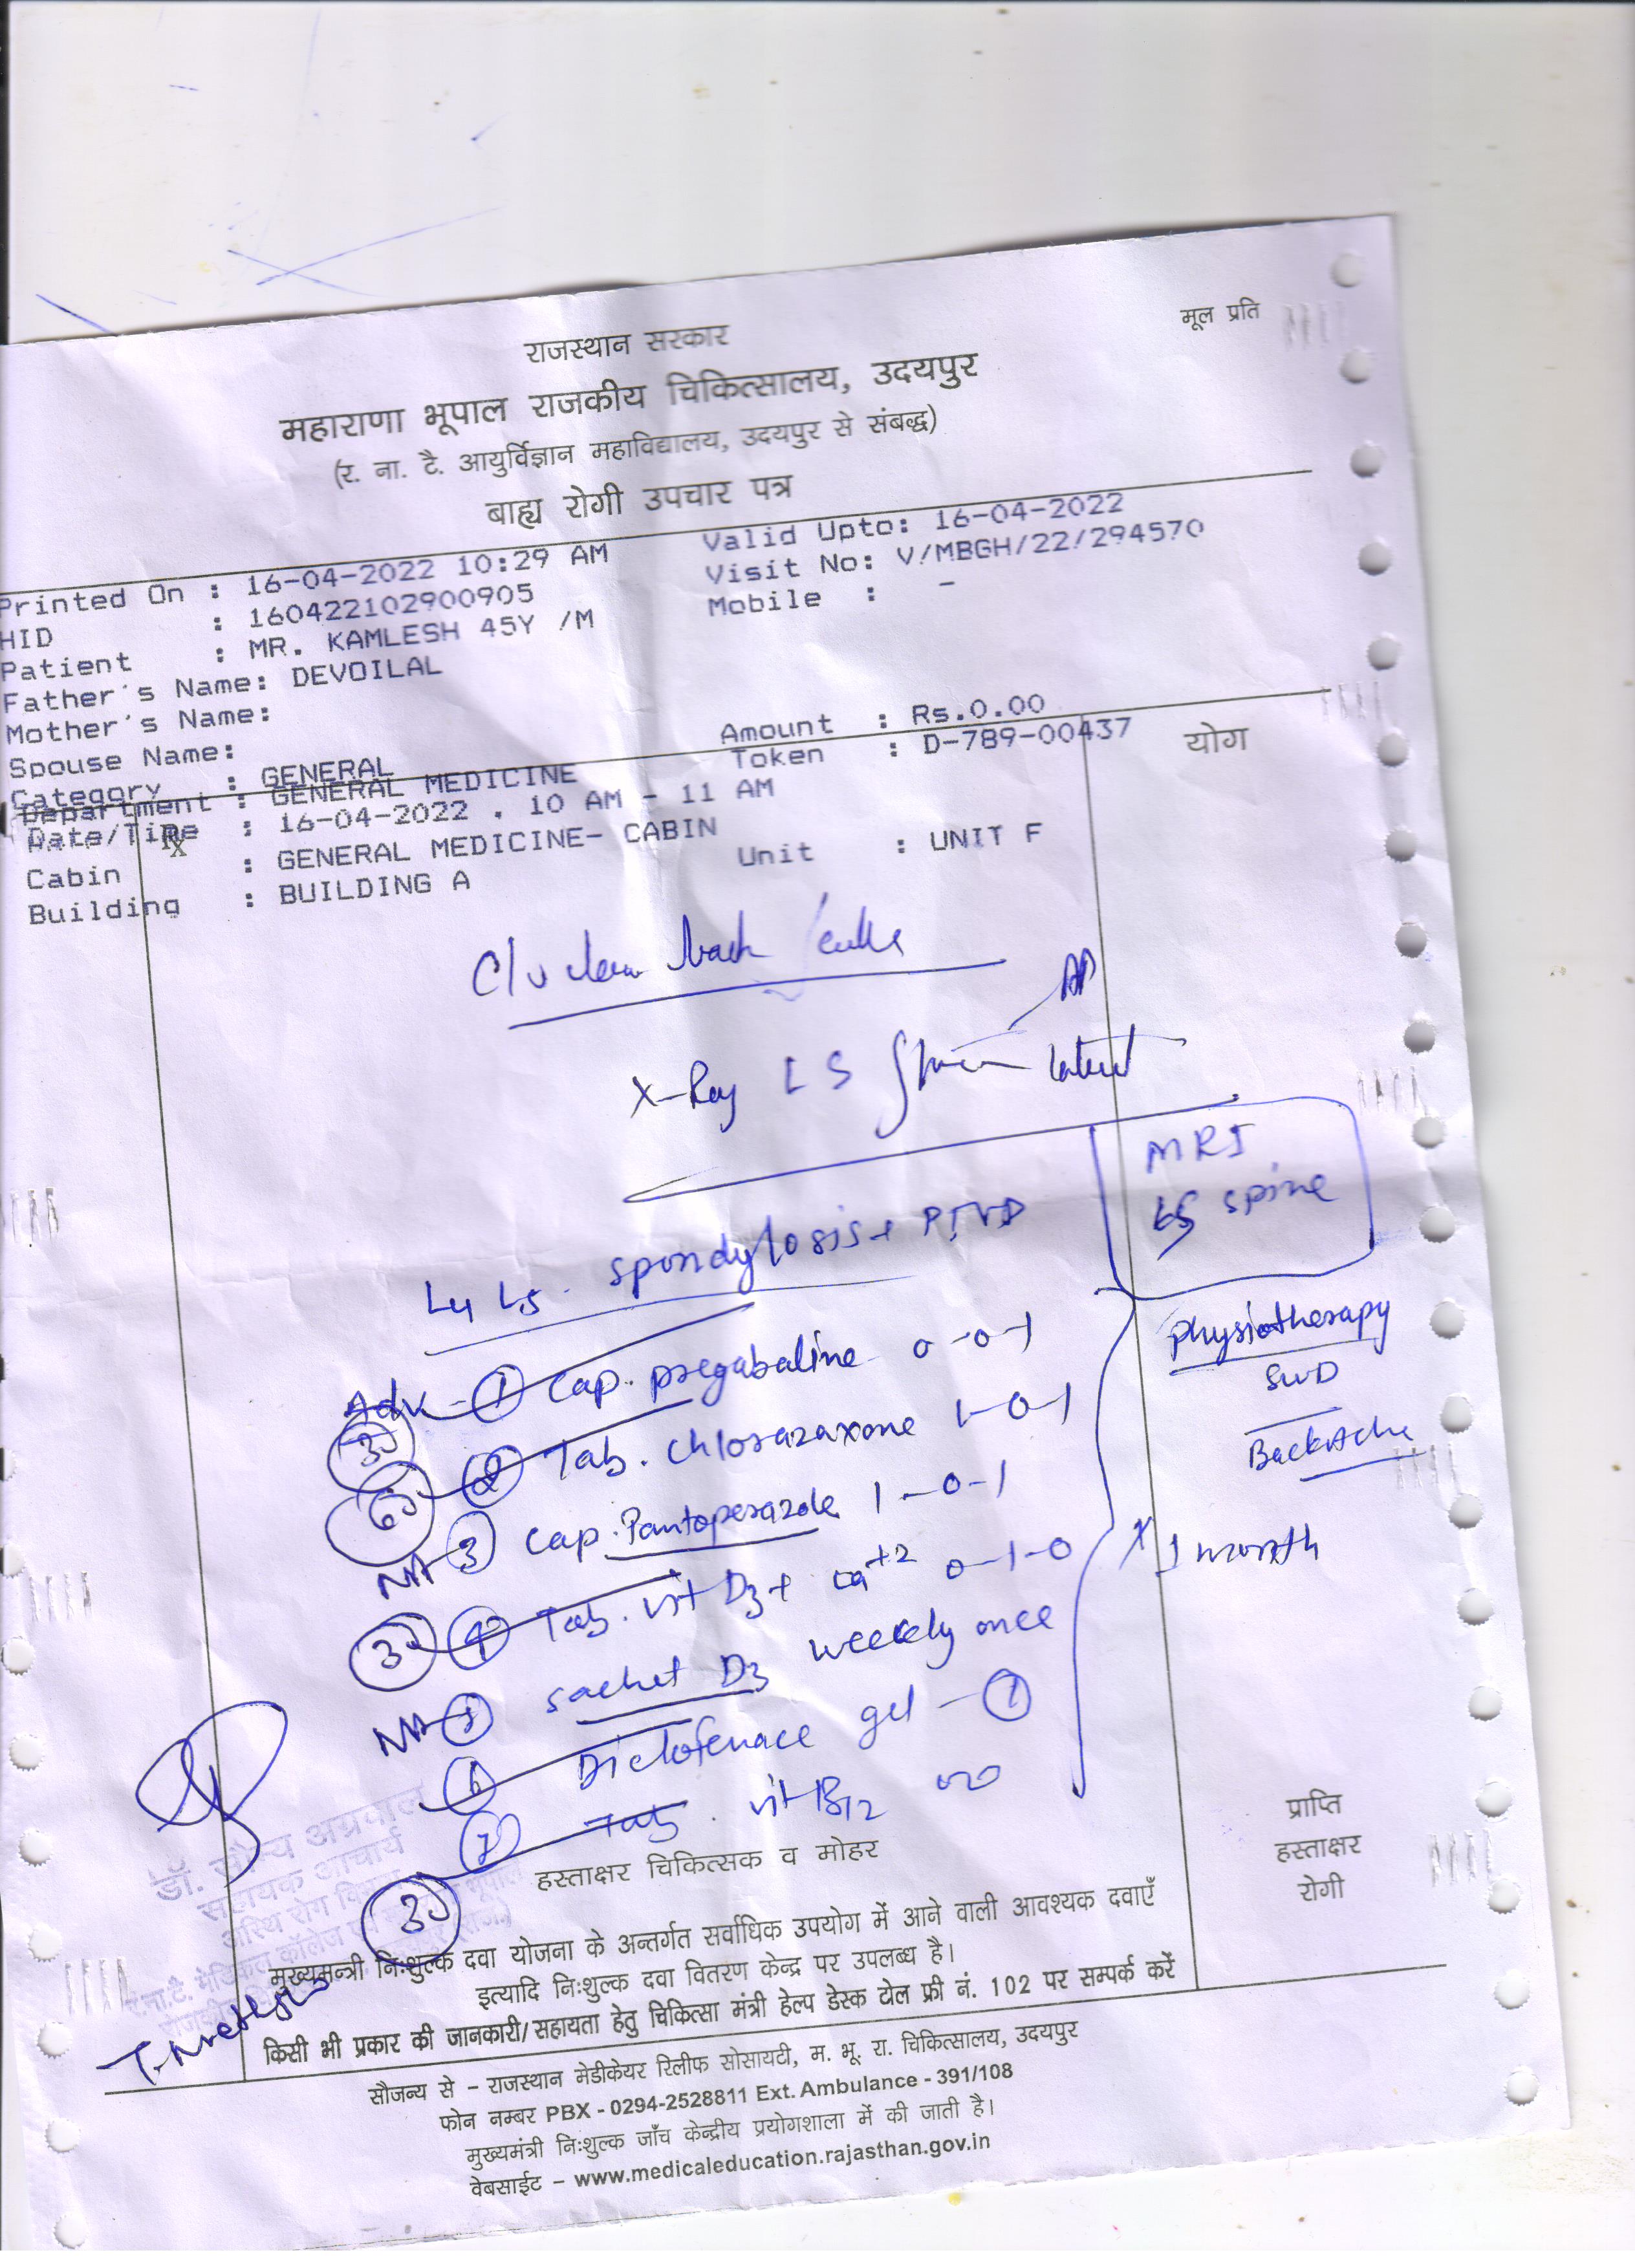 मूल प्रति
राजस्थान सरकार
महाराणा भूपाल राजकीय चिकित्सालय, उदयपुर
(र. ना. टै. आयुर्विज्ञान महाविद्यालय, उदयपुर से संबद्ध)
बाह्य रोगी उपचार पत्र
Printed On : 16-04-2022 10:29 AM Valid Upto: 16-04-2022
HID : 160422102900905 Visit No: V/MBGH/22/294570
Patient : MR. KAMLESH 45Y /M Mobile : -
Father's Name: DEVOILAL
Mother's Name:
Spouse Name: Amount : Rs.0.00
Category : GENERAL Token : D-789-00437
Department : GENERAL MEDICINE योग
Date/Time : 16-04-2022 , 10 AM - 11 AM
Rx
Cabin : GENERAL MEDICINE- CABIN Unit : UNIT F
Building : BUILDING A
back
AP
X-Ray LS Spine lateral
MRI
LS spine
L4 L5 spondylosis + PIVD
Physiotherapy
SWD
Backache
Adv - 1 Cap. pregabaline 0-0-1
30
2 Tab. Chlorazaxone 1-0-1
60
NA 3 Cap. Pantoperazole 1-0-1
x 1 month
30 4 Tab. vit D3 + ca+2 0-1-0
NA 5 sachet D3 weekly once
6 Diclofenace gel - 1
7 Tab. vit B12
30
प्राप्ति
हस्ताक्षर
रोगी
डॉ. सौम्य अग्रवाल
सहायक आचार्य
हस्ताक्षर चिकित्सक व मोहर
मुख्यमन्त्री निःशुल्क दवा योजना के अन्तर्गत सर्वाधिक उपयोग में आने वाली आवश्यक दवाएँ
इत्यादि निःशुल्क दवा वितरण केन्द्र पर उपलब्ध है।
किसी भी प्रकार की जानकारी/सहायता हेतु चिकित्सा मंत्री हेल्प डेस्क टोल फ्री नं. 102 पर सम्पर्क करें
सौजन्य से - राजस्थान मेडीकेयर रिलीफ सोसायटी, म. भू. रा. चिकित्सालय, उदयपुर
फोन नम्बर PBX - 0294-2528811 Ext. Ambulance - 391/108
मुख्यमंत्री निःशुल्क जाँच केन्द्रीय प्रयोगशाला में की जाती है।
वेबसाईट - www.medicaleducation.rajasthan.gov.in